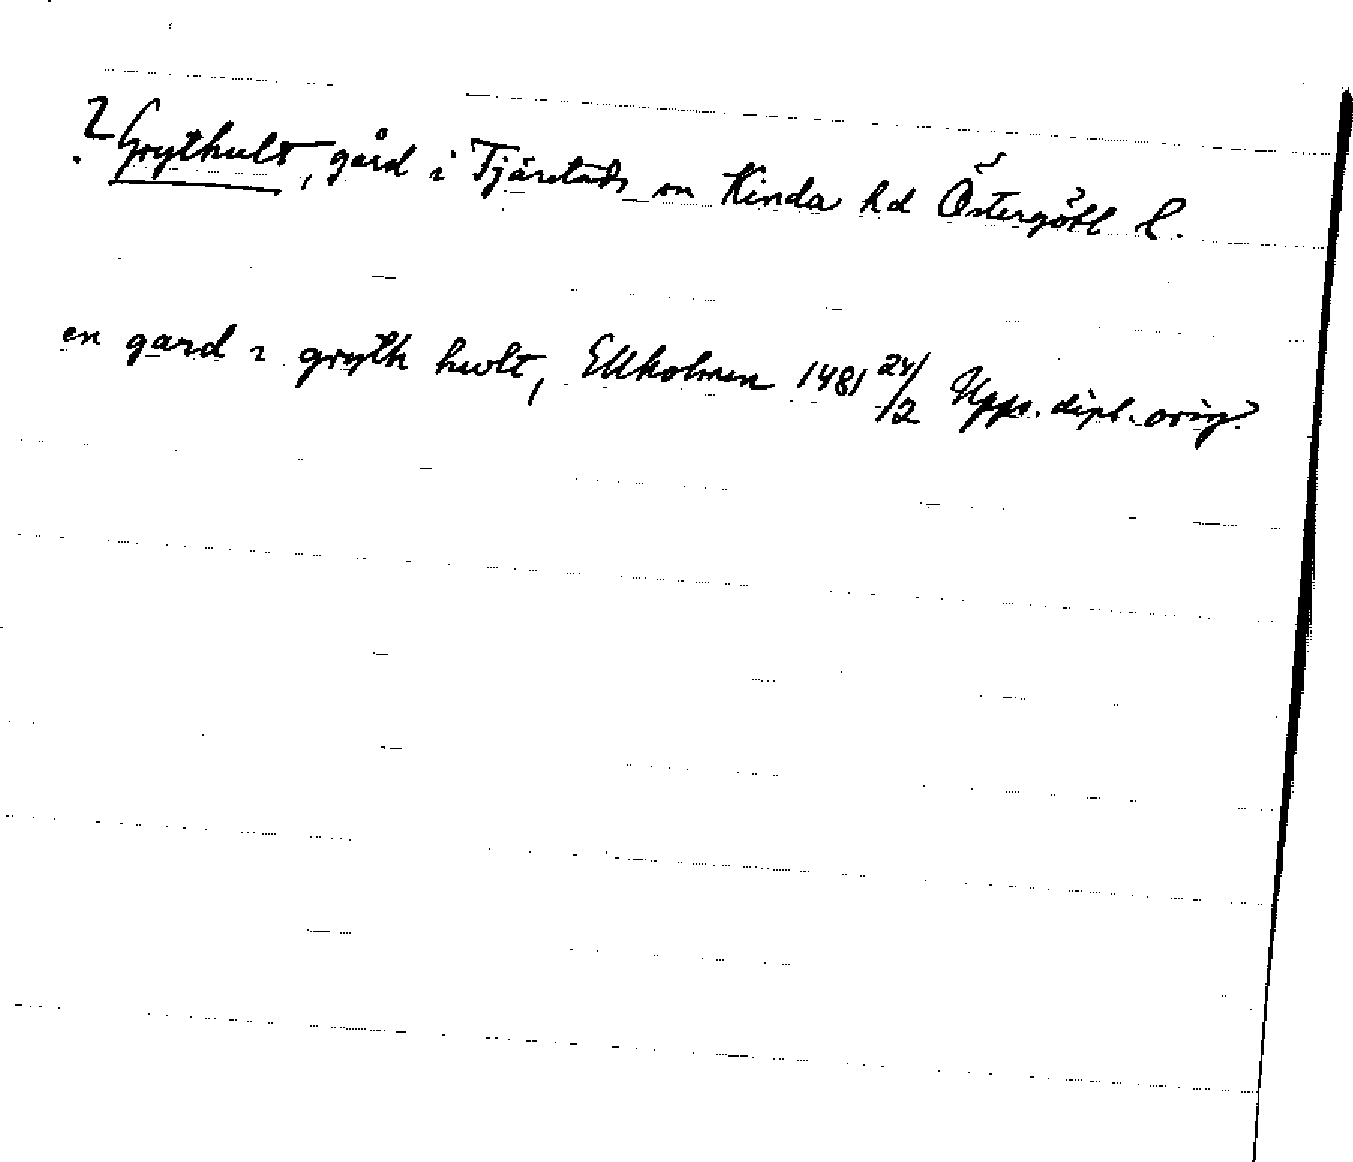 ? Grythult, gård i Tjärstads sn Kinda hd Östergötl l.
en gard i gryth hwlt, Ekholmen 1481 24/2 Upps. dipl. orig.